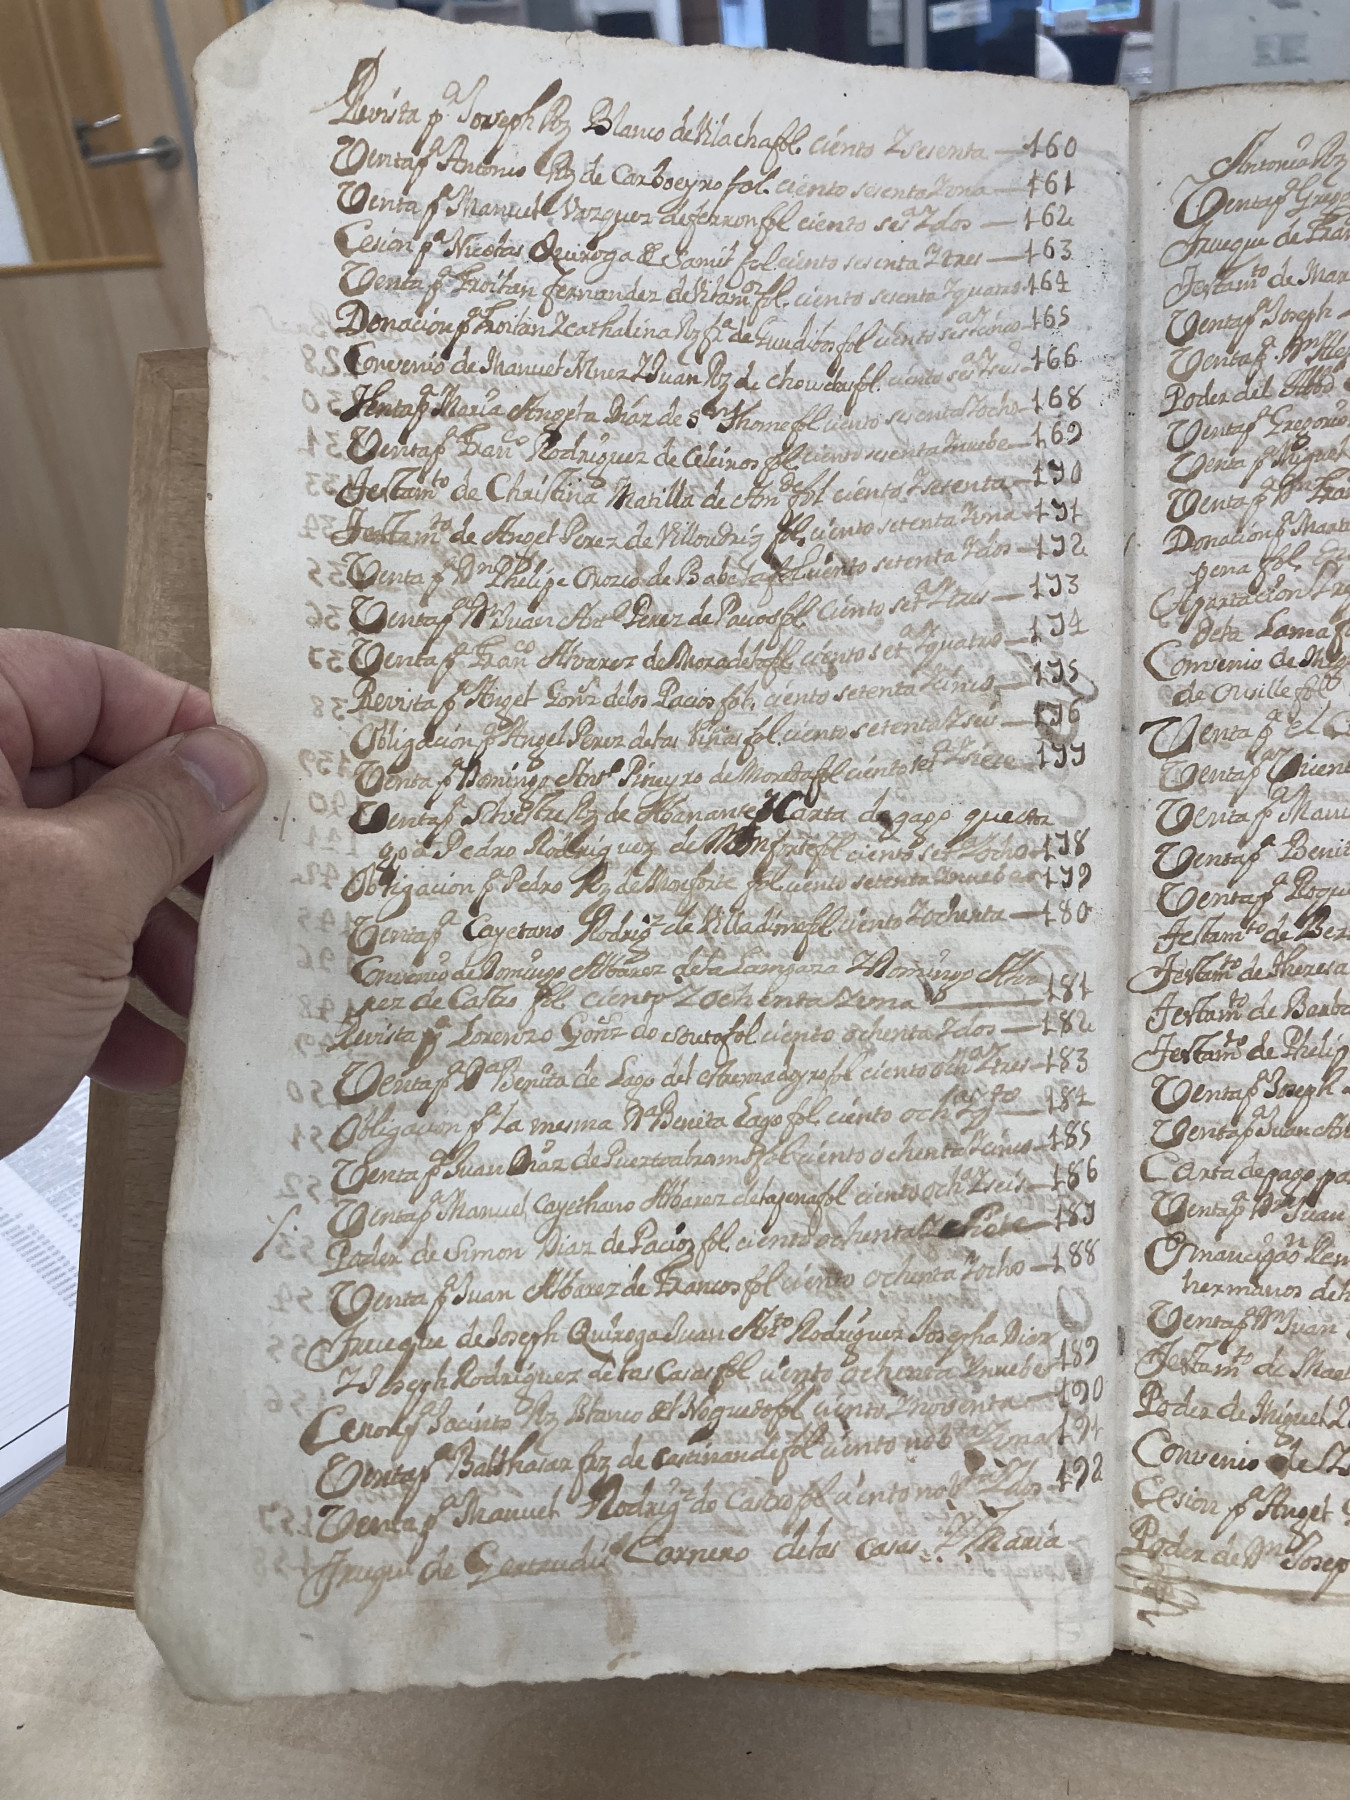 Revista pª Joseph Rz Blanco de Vilachafol. ciento y sesenta — 160
Venta pª Antonio Rz de Carboeyro fol. ciento sesenta y una — 161
Venta pª Manuel Vazquez de ferron fol ciento sesª y dos — 162
Cesion pª Nicolas Quiroga de Samil fol. ciento sesenta y tres — 163
Venta pª Froilan fernandez de Vilam fol. ciento sesenta y quatro 164
Donacion pª Froilan y Cathalina Rz frª de Gundibos fol ciento sesª y cinco 165
Convenio de Manuel Mnez y Juan Rz de Chouzas fol. ciento sesª y seis 166
Venta pª Maria Angela Diaz de Sn Thome fol ciento sesenta y ocho 168
Venta pª Franco Rodriguez de Celeiros fol ciento sesenta y nuebe 169
Testamto de Christina Matilla de fol ciento y setenta — 170
Testamto de Angel Perez de Villoudriz fol. ciento setenta y una — 171
Venta pª Dn Phelipe Orozco de Babela fol ciento setenta y dos — 172
Venta pª Dn Juan Antº Perez de Pacio fol. ciento setª y tres — 173
Venta pª Franco Alvarez de Moradela fol ciento setª y quatro — 174
Revista pª Angel Gonz delos Pacios fol. ciento setenta y cinco — 175
Obligacion pª Angel Perez de las Viñas fol. ciento setenta y seis — 176
Venta pª Domingo Antº Pineyro de Moreda fol ciento setª y siete — 177
Venta pª Silvestre Rz de Abanante y Carta de gago que
a Pedro Rodriguez de Monforte fol ciento setª y ocho — 178
Obligacion pª Pedro Rz de Monforte fol. ciento setenta y nuebe — 179
Venta pª Cayetano Rodrigz de Villadime fol ciento y ochenta — 180
Convenio de Domingo Albarez de la Lamgaza y Domingo Alba
rez de Castro fol. ciento y ochenta y una — 181
Revista pª Lorenzo Gonz do souto fol. ciento ochenta y dos — 182
Venta pª Dª Benita de Lago del estremadoyro fol ciento ochª y tres — 183
Obligacion pª La mesma Dª Benita Lago fol. ciento ochª y qto — 184
Venta pª Juan Diaz de Puertoabram fol ciento ochenta y cinco — 185
Venta pª Manuel Cayethano Albarez de lapena fol ciento ochª y seis — 186
Poder de Simon Diaz de Pacioz fol. ciento ochenta y siete — 187
Venta pª Juan Albarez de Francos fol ciento ochenta y ocho — 188
Trueque de Joseph Quiroga Juan Antº Rodriguez Josepha Diaz
y Joseph Rodriguez de las Casas fol ciento ochenta y nuebe 189
Cesion pª Jacinto Rz Blanco del Noguedo fol ciento y noventa — 190
Venta pª Balthasar frz de Castinande fol ciento nobª y una 191
Venta pª Manuel Rodrigz do Castro fol ciento nobª y dos — 192
Trueque de Gertrudis Carnero de las casas y Maria
Antonia Rz
Venta pª Grego
Trueque de Fran
Testamto de Mar
Venta pª Joseph
Venta pª Dn
Poder del
Venta pª Gregorio
Venta pª Miguel
Venta pª Dn Fran
Donacion pª Mart
pena fol.
Apartacion
dela Lama f
Convenio de
de Ousille fol
Venta pª el
Venta pª Vicen
Venta pª Manu
Venta pª Benit
Venta pª Roque
Testamto de Ber
Testamto de Theresa
Testamto de Barba
Testamto de Phelip
Venta pª Joseph
Venta pª Juan An
Carta de pago pa
Venta pª Dn Juan
Emancipaon
hermanos de
Venta pª Dn Juan
Testamto de Mart
Poder de Miguel
Convenio de
Cesion pª Angel
Poder de Dn Josep